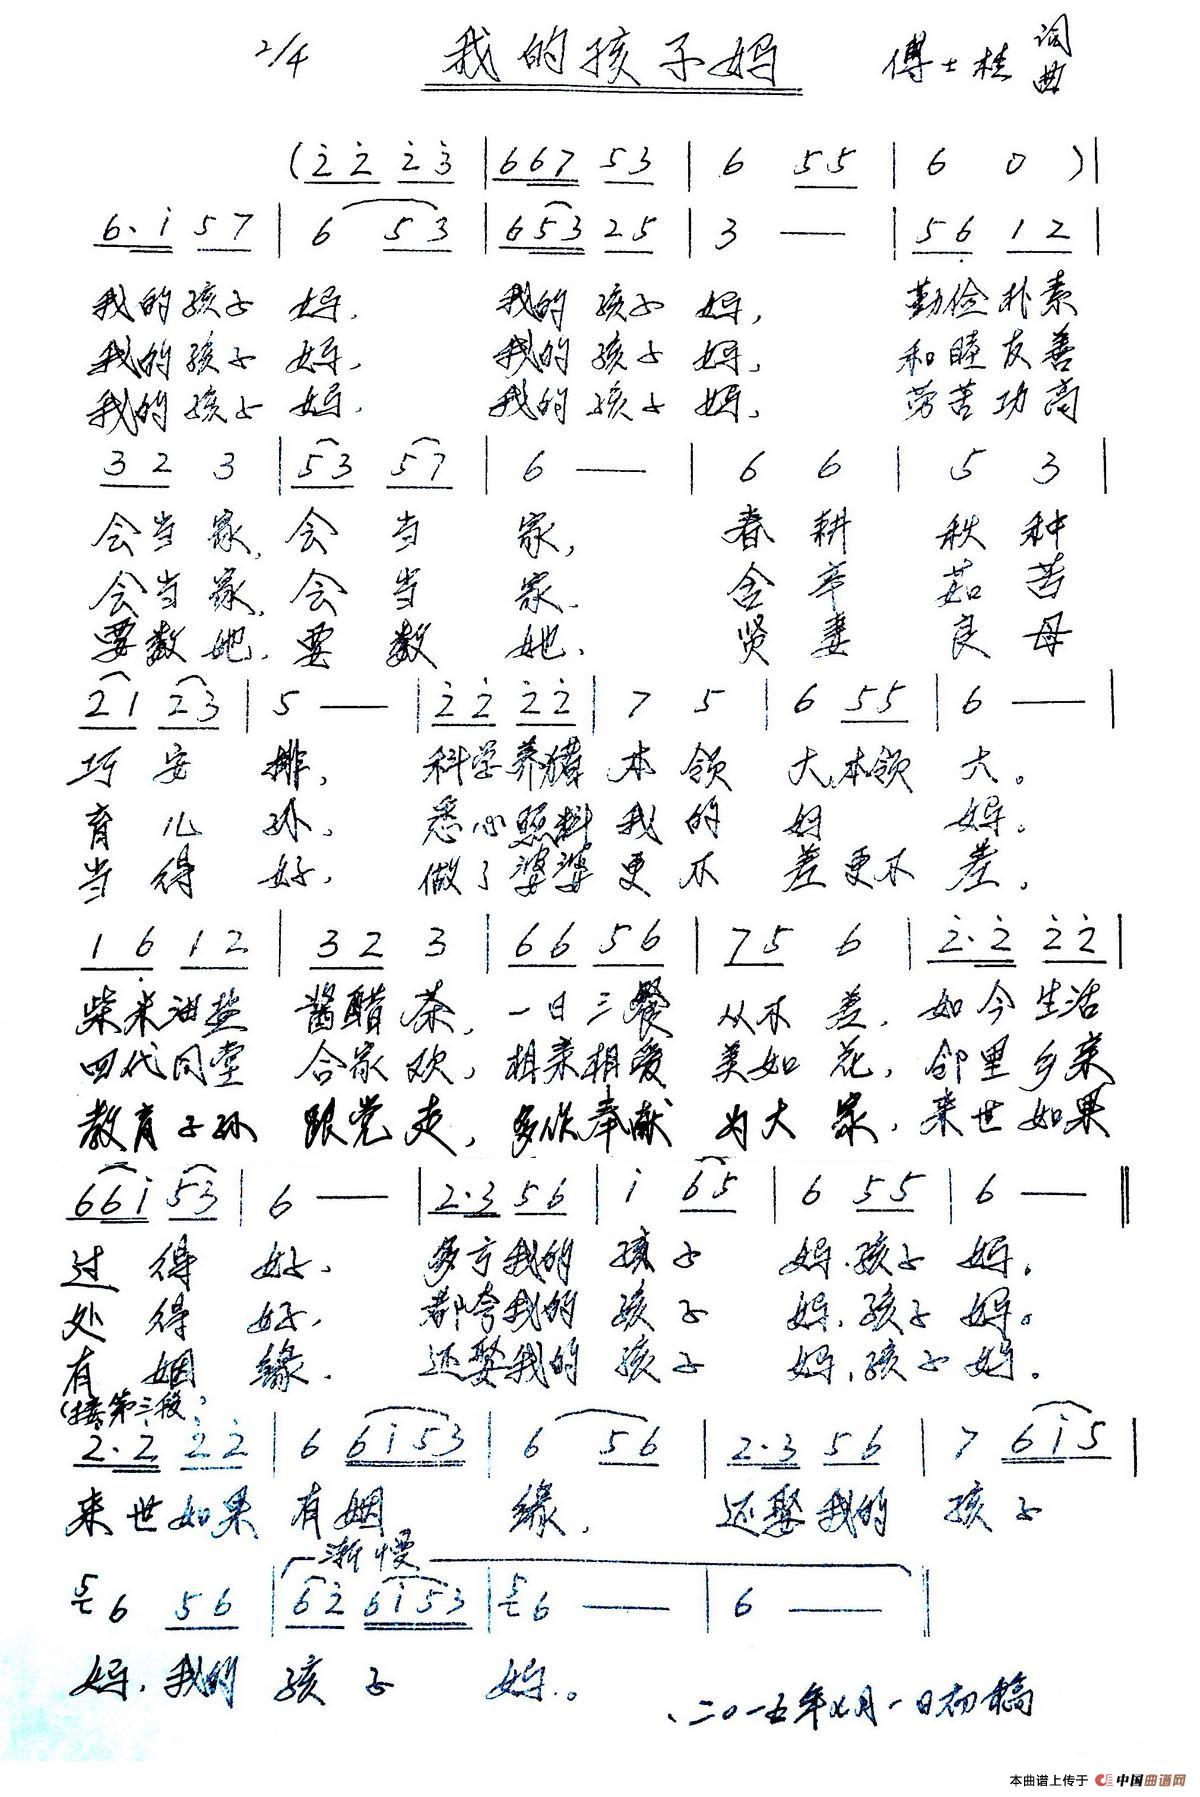 2/4 我的孩子妈 傅士桂 词曲
(2̇ 2̇ 2̇ 3̇ | 6 6 7 5 3 | 6 5 5 | 6 0 ) |
6. i 5 7 | 6 5 3 | 6 5 3 2 5 | 3 — | 5 6̣ 1 2 |
我的孩子 妈, 我的 孩子 妈, 勤俭朴素
我的孩子 妈, 我的 孩子 妈, 和睦友善
我的孩子 妈, 我的 孩子 妈, 劳苦功高
3 2 3 | 5 3 5 7 | 6 — | 6 6 | 5 3 |
会当家, 会当 家, 春耕 秋种
会当家, 会当 家, 含辛 茹苦
要数她, 要数 她, 贤妻 良母
2 1 2 3 | 5 — | 2̇ 2̇ 2̇ 2̇ | 7 5 | 6 5 5 | 6 — |
巧安 排, 科学养猪 本领 大,本领 大。
育儿 孙, 悉心照料 我的 妈 妈。
当得 好, 做了婆婆 更不 差更不 差,
1 6̣ 1 2 | 3 2 3 | 6 6 5 6 | 7 5 6 | 2̇. 2̇ 2̇ 2̇ |
柴米油盐 酱醋茶, 一日三餐 从不差, 如今生活
四代同堂 合家欢, 相亲相爱 美如花, 邻里乡亲
教育子孙 跟党走, 多做奉献 为大家, 来世如果
6 6 i 5 3 | 6 — | 2. 3 5 6 | i 6 5 | 6 5 5 | 6 — ‖
过得 好, 多亏我的 孩子 妈,孩子 妈,
处得 好, 都夸我的 孩子 妈,孩子 妈。
有姻 缘, 还娶我的 孩子 妈,孩子 妈。
(接第三段)
2̇. 2̇ 2̇ 2̇ | 6 6 i 5 3 | 6 5 6 | 2. 3 5 6 | 7 6 i 5 |
来世如果 有姻 缘, 还娶我的 孩子
渐慢
5 6 5 6 | 6 2̇ 6 i 5 3 | 5 6 — | 6 — ‖
妈,我的 孩子 妈。
二〇一五年七月一日初稿
本曲谱上传于 中国曲谱网